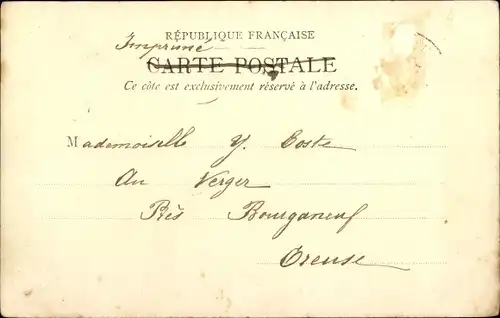 RÉPUBLIQUE FRANÇAISE
Imprimé
CARTE POSTALE
Ce côté est exclusivement réservé à l'adresse.
Mademoiselle Y. Coste
Au Verger
Près Bourganeuf
Creuse